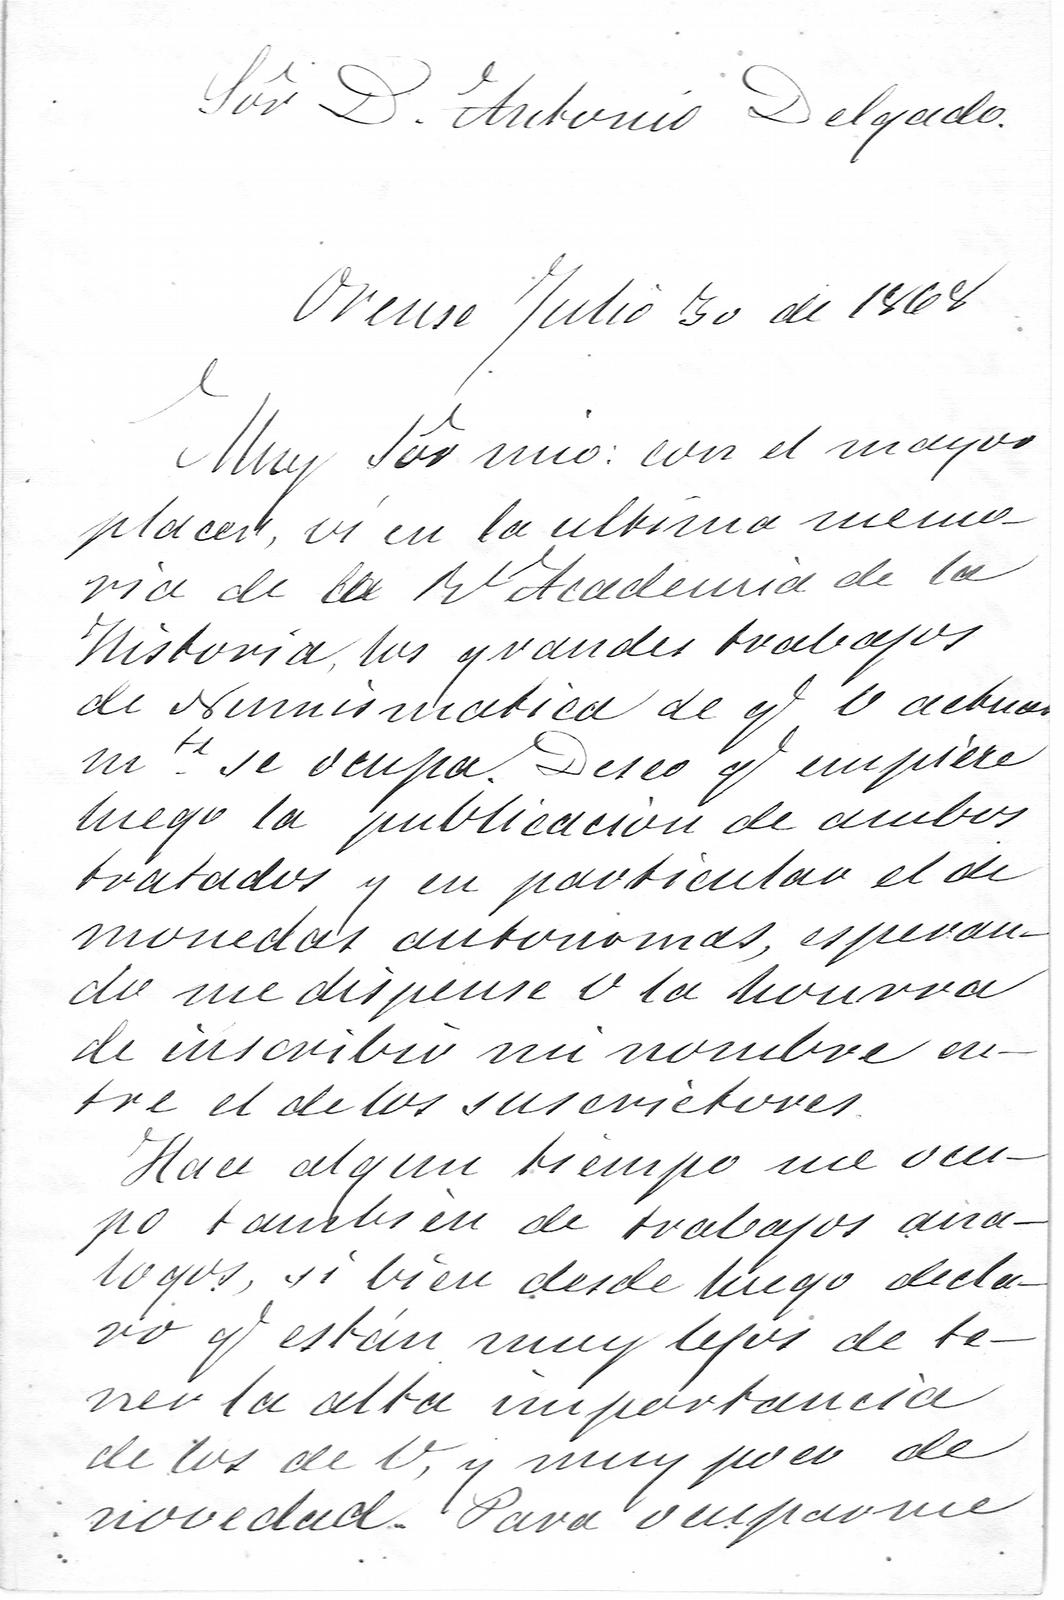 Sôr D. Antonio Delgado.
Orense Julio 30 de 1868
Muy Sôr mio: con el mayor
placer, ví en la ultima memo-
ria de la Rl Academia de la
Historia, los grandes trabajos
de Numismatica de q̃ V actual
mte. se ocupa. Deseo q̃ empiece
luego la publicacion de ambos
tratados y en particular el de
monedas autonomas, esperan-
do me dispense V la honrra
de inscribir mi nombre en-
tre el de los suscrictores.
Hace algun tiempo me ocu-
po tambien de trabajos aná-
logos, si bien desde luego decla-
ro q̃ están muy lejos de te-
ner la alta importancia
de los de V, y muy poco de
novedad. Para ocuparme